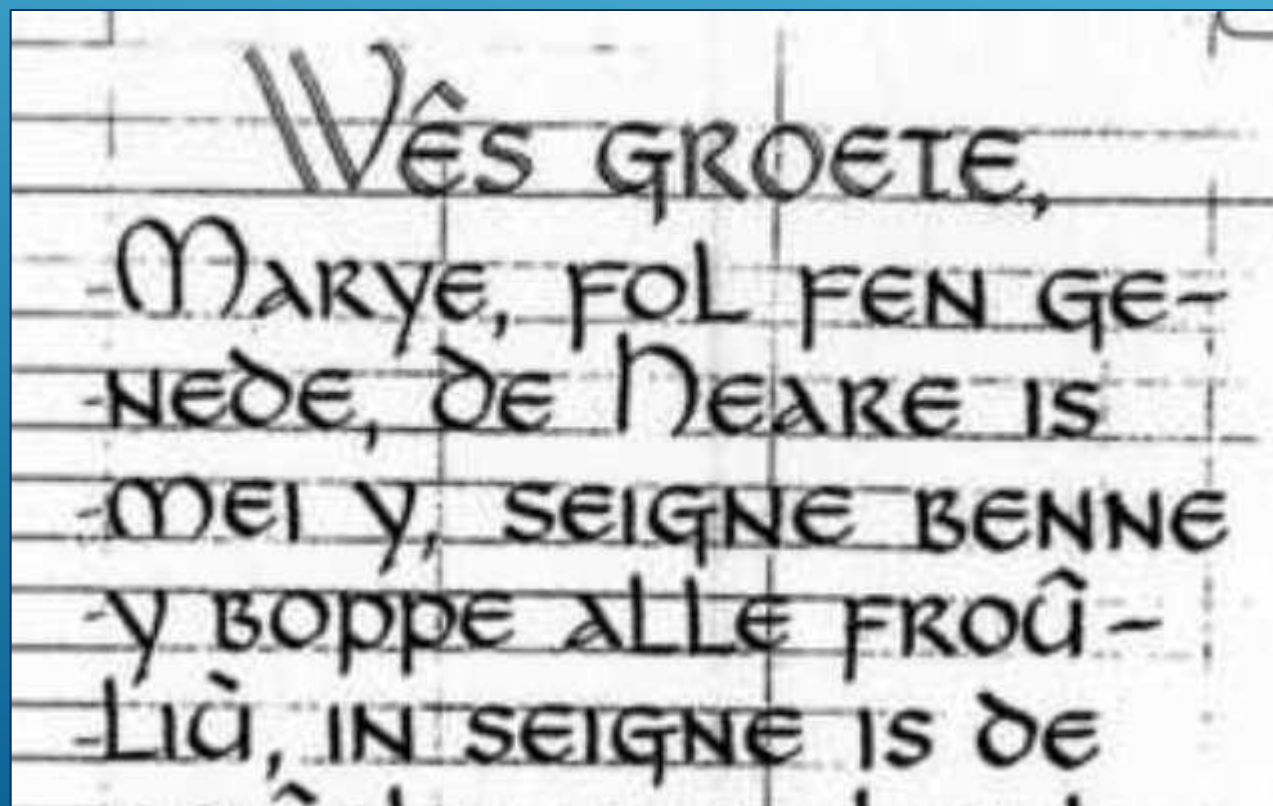 Wês groete,
Marye, fol fen ge-
nede, de Heare is
mei y, seigne benne
y boppe alle froû-
liù, in seigne is de